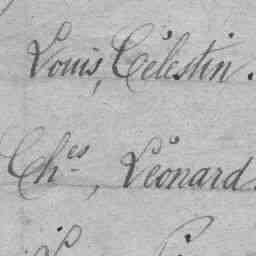 Louis, Célestin.
Ch.es, Léonard.